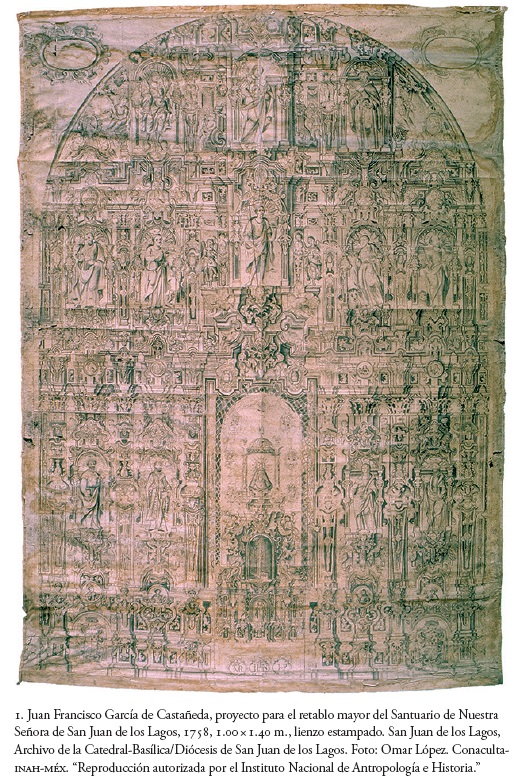 1. Juan Francisco García de Castañeda, proyecto para el retablo mayor del Santuario de Nuestra
Señora de San Juan de los Lagos, 1758, 1.00 × 1.40 m., lienzo estampado. San Juan de los Lagos,
Archivo de la Catedral-Basílica/Diócesis de San Juan de los Lagos. Foto: Omar López. Conaculta-
INAH-MÉX. “Reproducción autorizada por el Instituto Nacional de Antropología e Historia.”